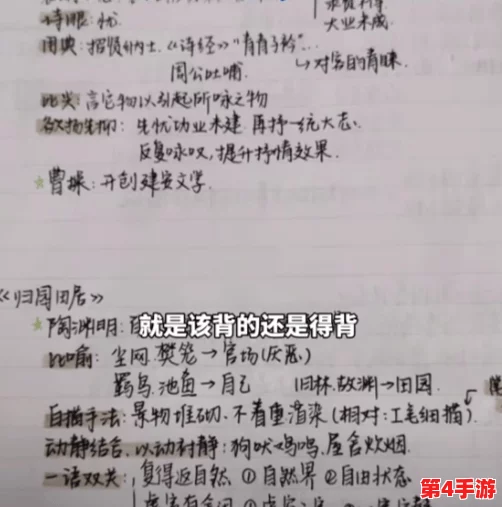 诗眼:忧
大业未成
用典:招贤纳士.《诗经》"青青子衿"
周公吐哺
↳对客的青睐
比兴:言它物以引起所咏之物
欲扬先抑:先忧功业未建.再抒一统大志.
反复咏叹,提升抒情效果.
☆曹操:开创建安文学.
《归园田居》
☆陶渊明:
就是该背的还是得背
比喻:尘网.樊笼→官场(厌恶)
羁鸟.池鱼→自己 旧林.故渊→田园.
白描手法:景物堆砌.不着重渲染(相对:工笔细描)
动静结合.以动衬静:狗吠鸡鸣.屋舍炊烟.
一语双关:复得返自然 ①自然界 ②自由状态
第4手游